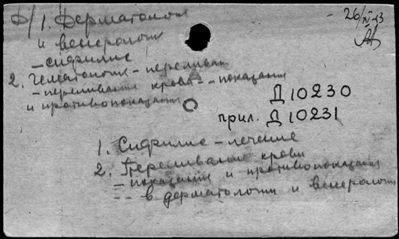 Д/ 1. Дерматология
и венерология
– сифилис
2. Гематология – переливан.
– переливание крови – показания
и противопоказания
26/IV-43
Д 10230
прил. Д 10231
1. Сифилис – лечение
2. Переливание крови
– показания и противопоказания
– в дерматологии и венерологии